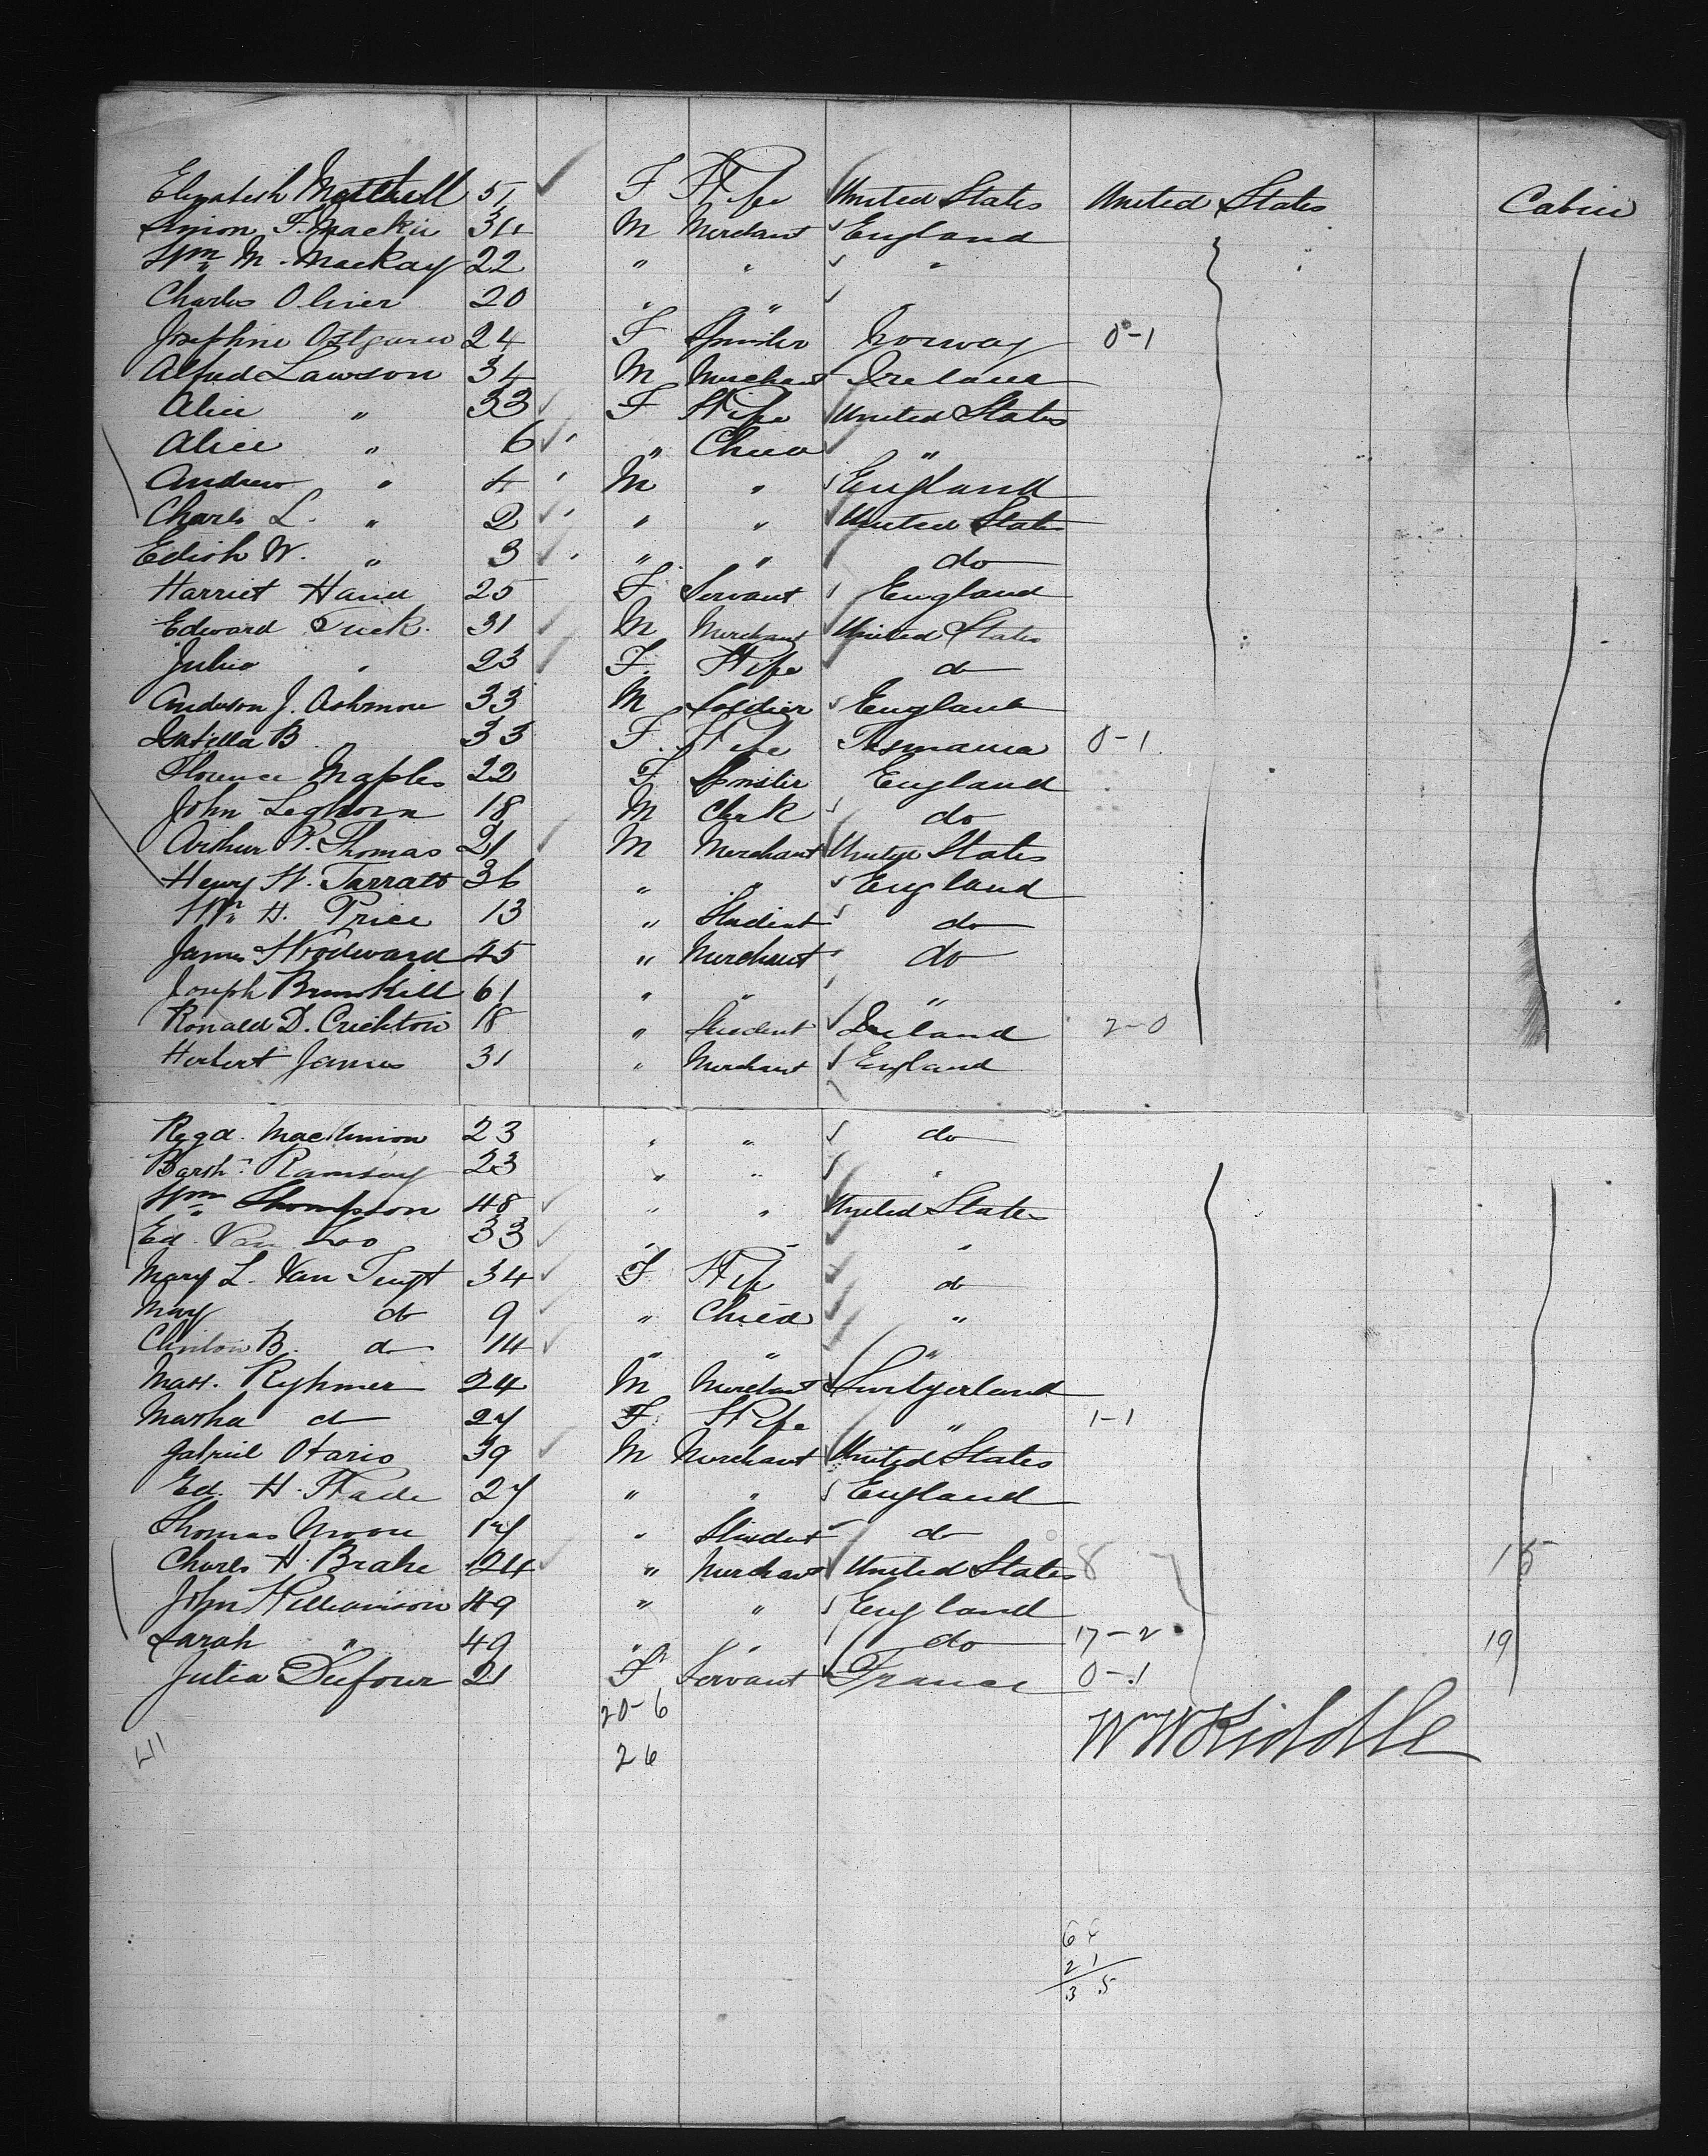 Elizabeth Mitchell 51 ✓ F Wife ✓ United States United States Cabin
Simon F. Mackie 34 M Merchant ✓ England
Wm M. Mackay 22 " " ✓ "
Charles Olivier 20 " " ✓
Josephine Ostgaren 24 F Spinster Norway 0-1
Alfred Lawson 34 M Merchant Ireland
Alice " 33 ✓ F Wife ✓ United States
Alice " 6 ✓ " Child ✓ "
Andrew " 4 M " ✓ England
Charls L. " 2 ✓ " " ✓ United States
Edith W. " 3 ✓ " " ✓ do
Harriet Hand 25 F Servant England
Edward Tuck 31 ✓ M Merchant ✓ United States
Julia " 23 ✓ F. Wife ✓ do
Anderson J. Ashmore 33 M Soldier ✓ England
B. 33 F. Wife Tasmania 0-1
Florence Maples 22 F Spinster England
John Leghorn 18 M Clerk ✓ do
Arthur P. Thomas 21 ✓ M Merchant ✓ United States
Henry W. Tarratt 36 " " ✓ England
Wm H. Price 13 " Student ✓ do
James Woodward 45 " Merchant do
Joseph Brunskill 61 " " "
Ronald D. Crichton 18 " Student ✓ Ireland 2-0
Herbert James 31 " Merchant ✓ England
Regd. 23 " " ✓ do
Barth. Ramsay 23 " " ✓ "
Wm Thompson 48 ✓ " " ✓ United States
Ed. Van Loo 33 ✓ " " ✓ "
Mary L. Van 34 ✓ F Wife ✓ do
May do 9 ✓ " Child ✓ "
Clinton B. do 14 ✓ " " ✓ "
Matt. Ryhmer 24 M Merchant ✓ Switzerland
Martha do 27 F Wife " 1-1
Gabriel Otario 39 ✓ M Merchant ✓ United States
Ed. H. Wade 27 " " ✓ England
Thomas Moon 17 " Student ✓ do
Charls H. Brake 24 ✓ " Merchant ✓ United States 8 15
John Williamson 49 " " ✓ England
Sarah " 49 " " do 17-2 19
Julia Dufour 21 F Servant ✓ France 0-1
20-6
Wm W Kiddle
26
21